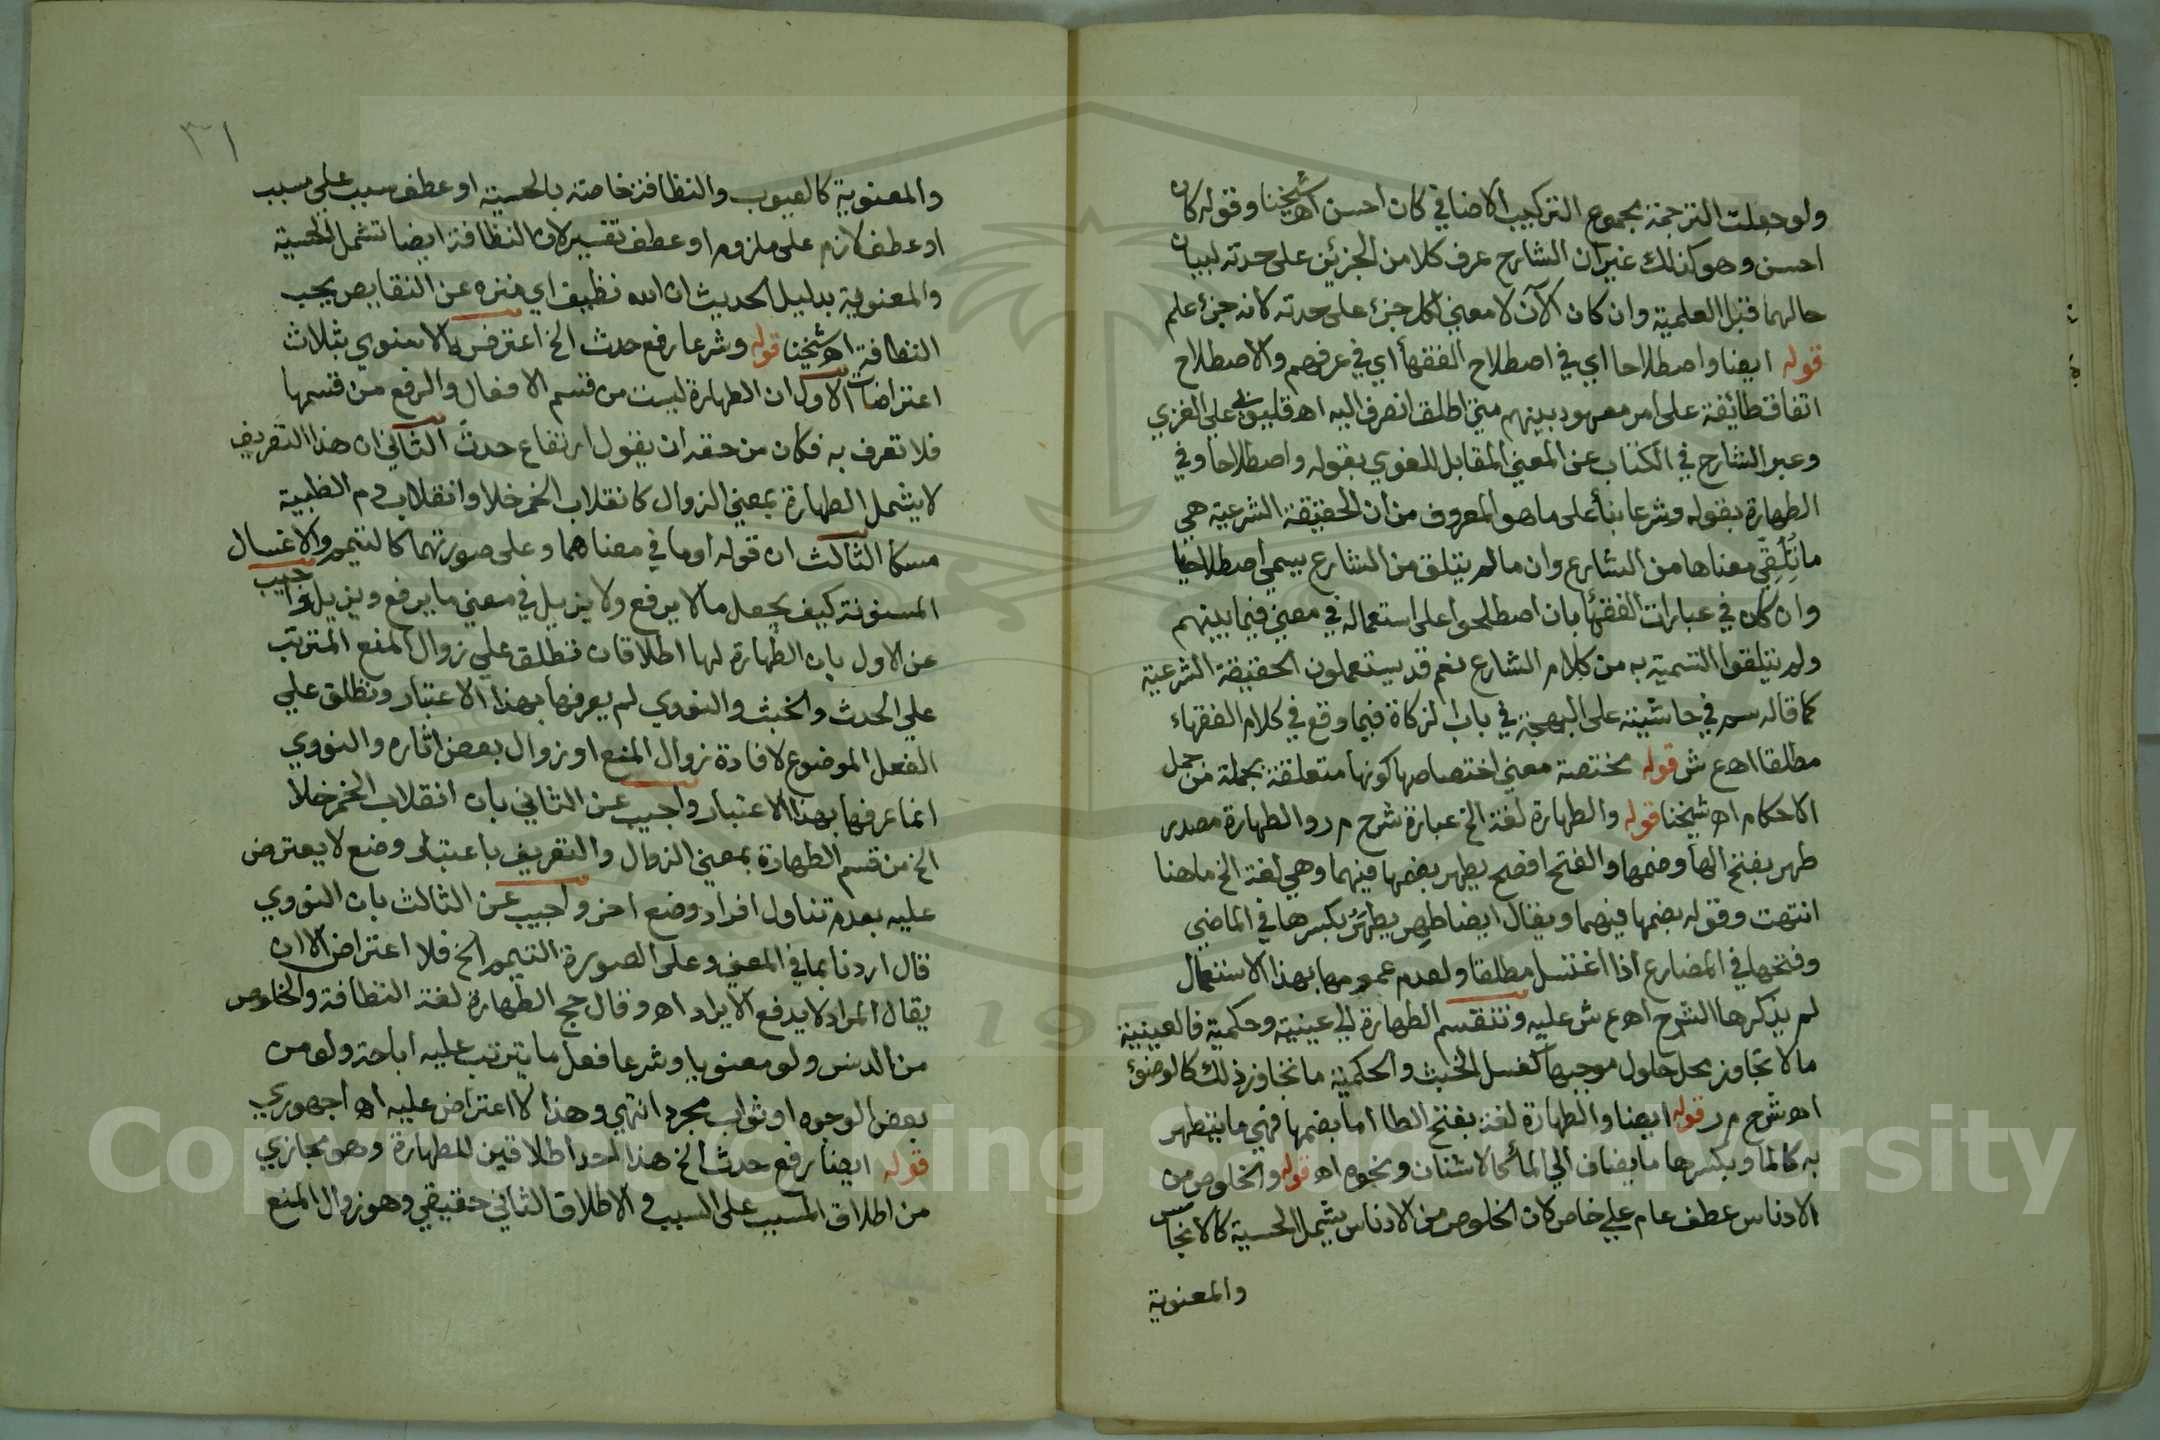 ولو جعلت الترجمة مجموع التركيب الاضافي كان احسن اهـ شيخنا وقوله كان
احسن وهو كذلك غير ان الشارح عرف كلا من الجزئين على حدته لبيان
حالهما قبل العلمية وان كان الآن لا معنى لكل جزء على حدته لانه جزء علم
قوله ايضا واصطلاحا اي في اصطلاح الفقهاء اي في عرفهم والاصطلاح
اتفاق طائفة على امر معهود بينهم متى اطلق انصرف اليه اهـ قليوبي على الغزي
وعبر الشارح في الكتاب عن المعنى المقابل للغوي بقوله واصطلاحا وفي
الطهارة بقوله وشرعا بناء على ما هو المعروف من ان الحقيقة الشرعية هي
ما تُلُقِّي معناها من الشارع وان ما لم يتلق من الشارع يسمى اصطلاحيا
وان كان في عبارات الفقهاء بان اصطلحوا على استعماله في معنى فيما بينهم
ولم يتلقوا التسمية به من كلام الشارع نعم قد يستعملون الحقيقة الشرعية
كما قاله سم في حاشيته على البهجة في باب الزكاة فيما وقع في كلام الفقهاء
مطلقا اهـ ع ش قوله مختصة معنى اختصاصها كونها متعلقة بجملة من جمل
الاحكام اهـ شيخنا قوله والطهارة لغة الخ عبارة شرح م ر والطهارة مصدر
طهر بفتح الهاء وضمها والفتح افصح يطهر بضمها فيهما وهي لغة الخ ما هنا
انتهت وقوله بضمها فيهما ويقال ايضا طهِر يطهَر بكسرها في الماضي
وفتحها في المضارع اذا اغتسل مطلقا ولعدم عمومها بهذا الاستعمال
لم يذكرها الشرح اهـ ع ش عليه وتنقسم الطهارة الي عينية وحكمية فالعينية
ما لا تجاوز محل حلول موجبها كغسل الخبث والحكمية ما تجاوز ذلك كالوضوء
اهـ شرح م ر قوله ايضا والطهارة لغة بفتح الطا اما بضمها فهي ما يتطهر
به كالما وبكسرها ما يضاف الي الماء كالاشنان ونحوه اهـ قوله والخلوص من
الادناس عطف عام علي خاص لان الخلوص من الادناس يشمل الحسية كالانجاس
والمعنوية
٣١
والمعنوية كالعيوب والنظافة خاصة بالحسية او عطف سبب علي مسبب
او عطف لازم على ملزوم او عطف تفسير لان النظافة ايضا تشمل الحسية
والمعنوية بدليل الحديث ان الله نظيف اي منزه عن النقايص يحب
النظافة اهـ شيخنا قوله وشرعا رفع حدث الخ اعترض الاسنوي بثلاث
اعتراضات الاول ان الطهارة ليست من قسم الافعال والرفع من قسمها
فلا تعرف به فكان من حقه ان يقول ارتفاع حدث الثاني ان هذا التعريف
لا يشمل الطهارة بمعنى الزوال كانقلاب الخمر خلا وانقلاب دم الظبية
مسكا الثالث ان قوله او ما في معناهما وعلى صورتهما كالتيمم والاغسال
المسنونة كيف يجعل ما لا يرفع ولا يزيل في معنى ما يرفع ويزيل واجيب
عن الاول بان الطهارة لها اطلاقان فتطلق علي زوال المنع المترتب
علي الحدث والخبث والنووي لم يعرفها بهذا الاعتبار وتطلق علي
الفعل الموضوع لافادة زوال المنع او زوال بعض اثاره والنووي
انما عرفها بهذا الاعتبار واجيب عن الثاني بان انقلاب الخمر خلا
الخ من قسم الطهارة بمعنى الزوال والتعريف باعتبار وضع لا يعترض
عليه بعدم تناول افراد وضع اخر واجيب عن الثالث بان النووي
قال اردنا بما في المعنى وعلى الصورة التيمم الخ فلا اعتراض الا ان
يقال المراد لا يدفع الايراد اهـ وقال حج الطهارة لغة النظافة والخلوص
من الدنس ولو معنويا وشرعا فعل ما يترتب عليه اباحة ولو من
بعض الوجوه او ثواب مجرد انتهي وهذا لا اعتراض عليه اهـ اجهوري
قوله ايضا رفع حدث الخ هذا احد اطلاقين للطهارة وهو مجازي
من اطلاق المسبب على السبب والاطلاق الثاني حقيقي وهو زوال المنع
Copyright © King Saud University